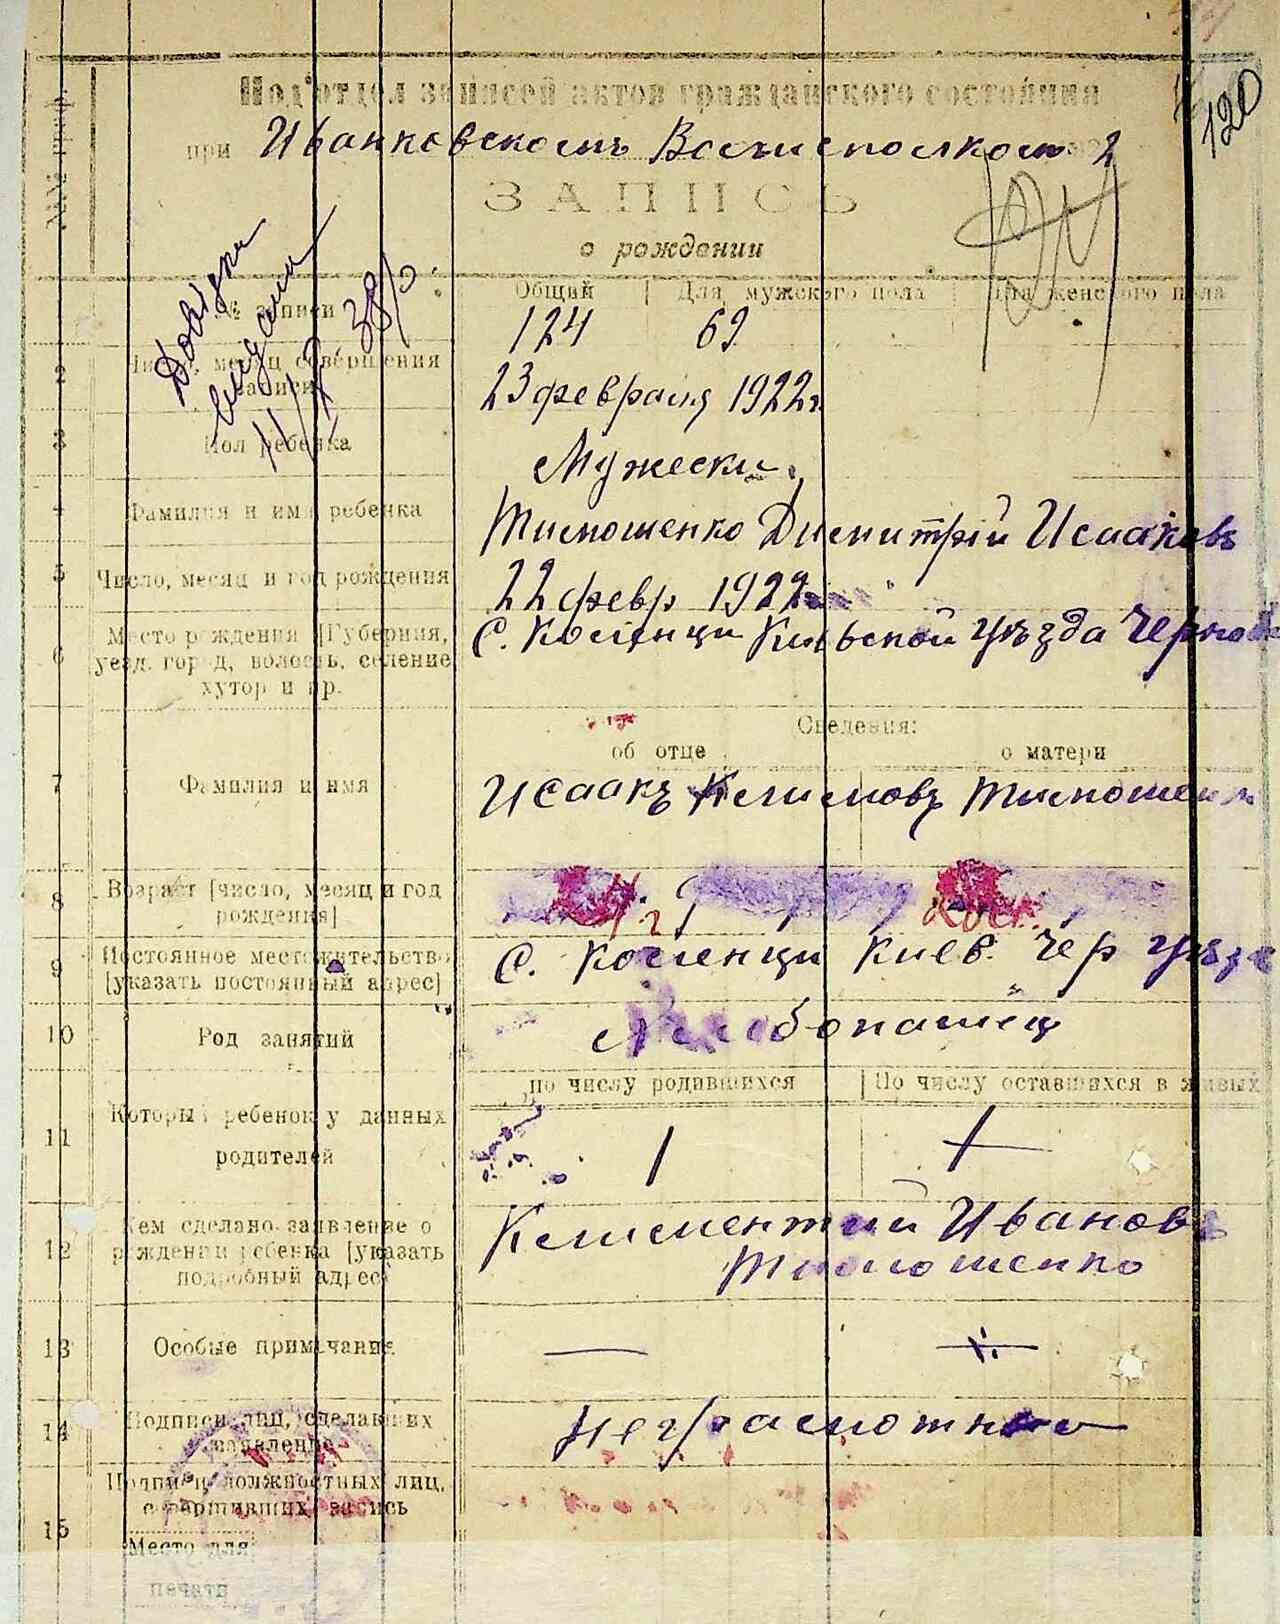 120
Под'отдел записей актов гражданского состояния
при Иванковскомъ Волисполком
ЗАПИСЬ
о рождении
Общий | Для мужского пола | Для женского пола
1 № записи 124 69
2 Число, месяц совершения записи 23 февраля 1922г
3 Пол ребенка Мужески
4 Фамилия и имя ребенка Тимошенко Димитрій Исааковъ
5 Число, месяц и год рождения 22 февр 1922
6 Место рождения [Губерния, уезд, город, волость, селение, хутор и пр. С. Коленци Киевьской уѣзда Черноб
Сведения:
об отце о матери
7 Фамилия и имя Исаакъ Климовъ Тимошенко
8 Возраст [число, месяц и год рождения]
9 Постоянное местожительство [указать постоянный адрес] С. Коленци Киев. Чер уѣзд
10 Род занятий Хлебопашец
по числу родившихся | По числу оставшихся в живых
11 Который ребенок у данных родителей 1
12 Кем сделано заявление о рождении ребенка [указать подробный адрес] Клементий Иванов
Тимошенко
13 Особые примечания —
14 Подписи лиц, сделавших заявление неграмотные
15 Подписи должностных лиц, совершивших запись
Место для
печати
Довідки
видани